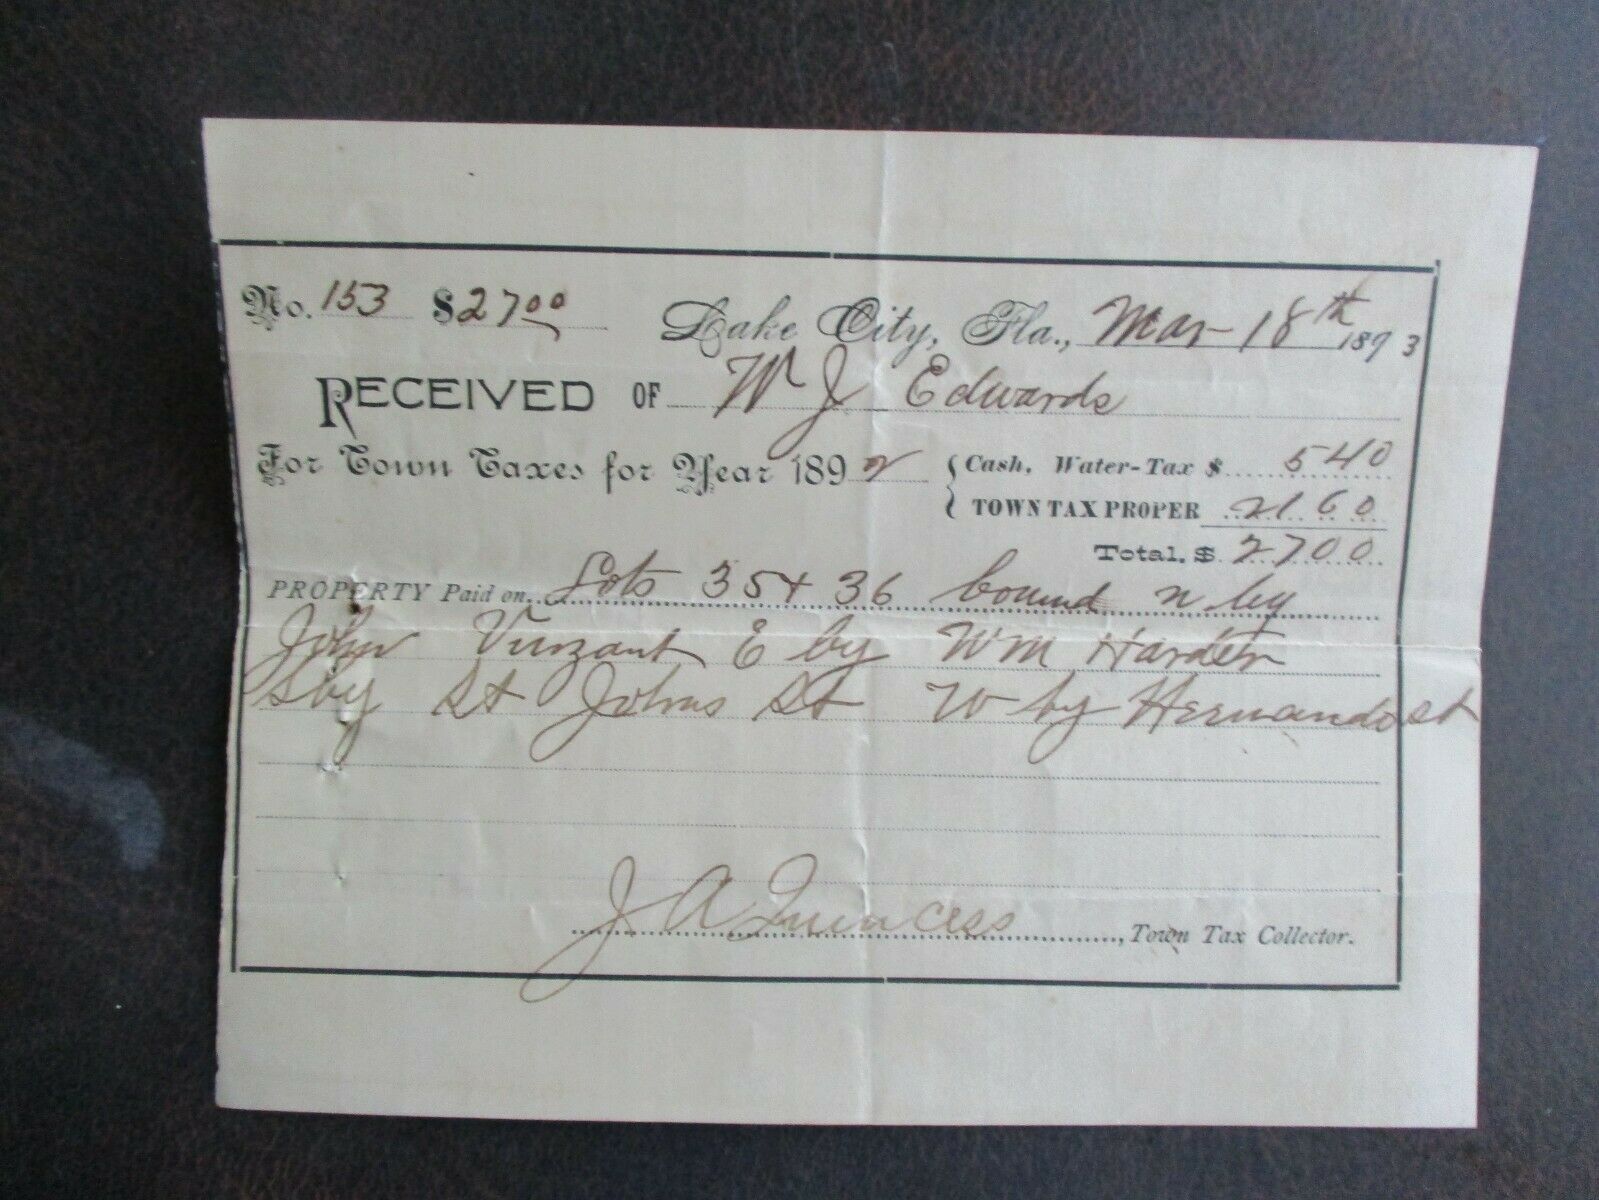 No. 153 $27 00 Lake City, Fla., Mar 18th 1893
RECEIVED OF W J Edwards
For Town Taxes for Year 1892 { Cash. Water-Tax $ 5 40
TOWN TAX PROPER 21 60
Total. $ 27 00
PROPERTY Paid on Lots 35 + 36 bound n by
John Vinzant E by Wm Harden
S by St Johns St W by Hernando st
J A , Town Tax Collector.